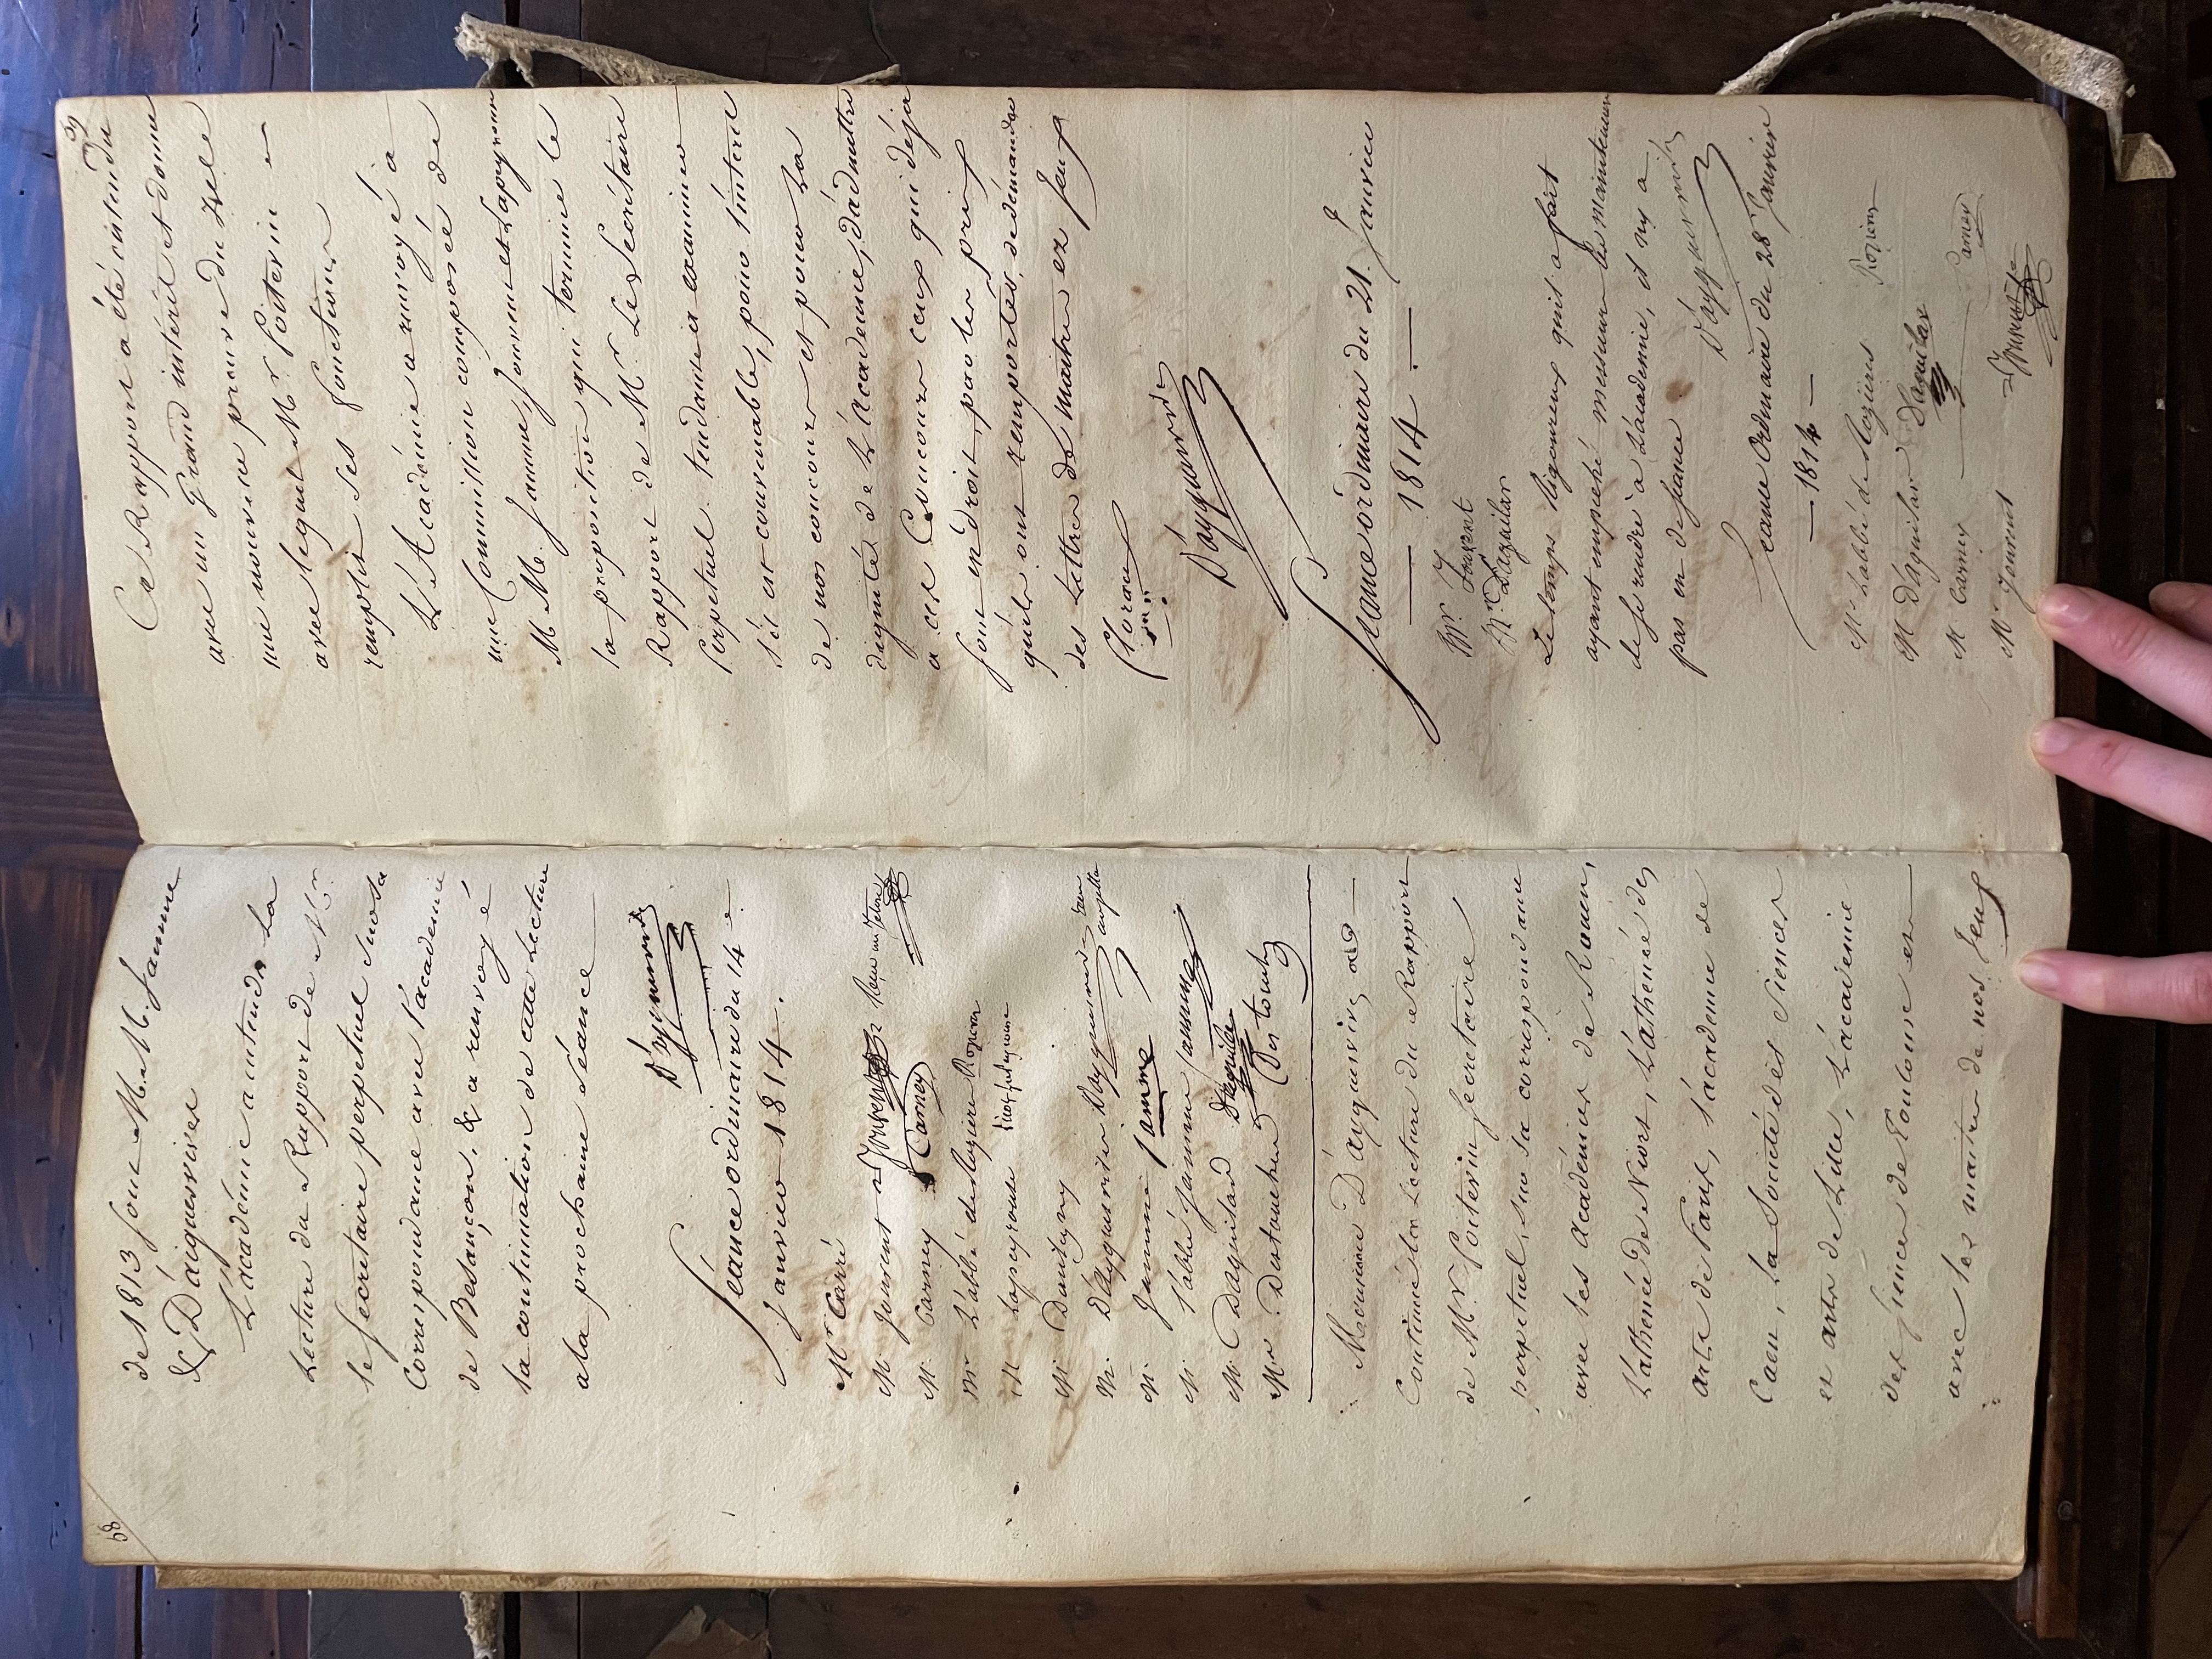 68
de 1813 sont M. M. Jamme
& D'aiguesvives
L'académie a entendu la
Lecture du Rapport de Mr
le secretaire perpetuel sur sa
Correspondance avec l'academie
de Besançon, & a renvoyé
la continuation de cette Lecture
a la prochaine séance
D'ayguesvives
Séance ordinaire du 14 e
Janvier 1814.
Mr Carré
M. Jouvent Jouvent
M. Carney Carney
Mr L'abbé de Rogieres Rozieres
M. Lapeyrouse
M. Dantigny
M. D'ayguesvives D'ayguesvives
M. Jamme Jamme
M. l'abbé Jamme Jamme
M. Daguilard D'aguilar
Mr Destouches Des touches
Monsieur D'ayguesvives a
Continué la Lecture du Rapport
de Mr. Poitevin secretaire
perpetuel, sur sa correspondance
avec les académies de Rouen,
l'athenée de Niort, L'athenée des
arts de Paris, l'academie de
Caen, la Societé des Siences
et arts de Lille, L'académie
des sciences de Toulouse et
avec les maitres de nos Jeux
39
Ce Rapport a été entendu
avec un Grand interêt et donne
une nouvelle preuve du zele
avec lequel Mr. Poitevin
remplit ses fonctions
L'Académie a renvoyé a
une Commission composée de
M. M. Jamme, Jouvent et Lapeyrouse
la proposition qui termine le
Rapport de Mr. Le Secrétaire
Perpetuel tendante a examiner
s'il est convenable, pour l'interet
de nos concours et pour la
dignité de L'Academie, d'admettre
a ces Concours ceux qui déja
sont en droit, par les prix
qu'ils ont remportés, de demander
des Lettres de maitre ez Jeux
floraux
D'ayguesvives
Seance ordinaire du 21. Janvier
— 1814. —
Mr. Jouvent
Mr. Daguilar
Le temps rigoureux qu'il a fait
ayant empeché messieurs les mainteneurs
de se rendre à L'académie, il n'y a
pas eu de séance D'ayguesvives
Seance Ordinaire du 28 Janvier
— 1814 —
Mr L'abbé de Rogieres Rozieres
M D'aguilar D'aguilar
M Carney Carney
Mr Jouvent Jouvent